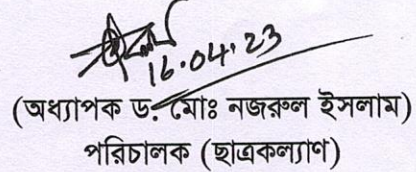 16.04.23
(অধ্যাপক ড. মোঃ নজরুল ইসলাম)
পরিচালক (ছাত্রকল্যাণ)